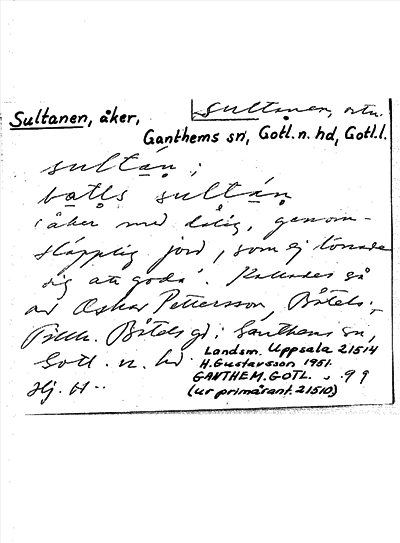 Sultanen, ortn.
Sultanen, åker,
Ganthems sn, Gotl. n. hd, Gotl.l.
sultán;
batls sultán
'åker med dålig, genom-
släpplig jord, som ej lönade
sig att göda'. Kallades så
av Oskar Pettersson, Båtels;
Båtels gd; Ganthems sn,
Gotl. n. hd.
Hj. H.
Landsm. Uppsala 21514
H. Gustavsson 1951.
GANTHEM. GOTL. 99
(ur primärant. 21510)